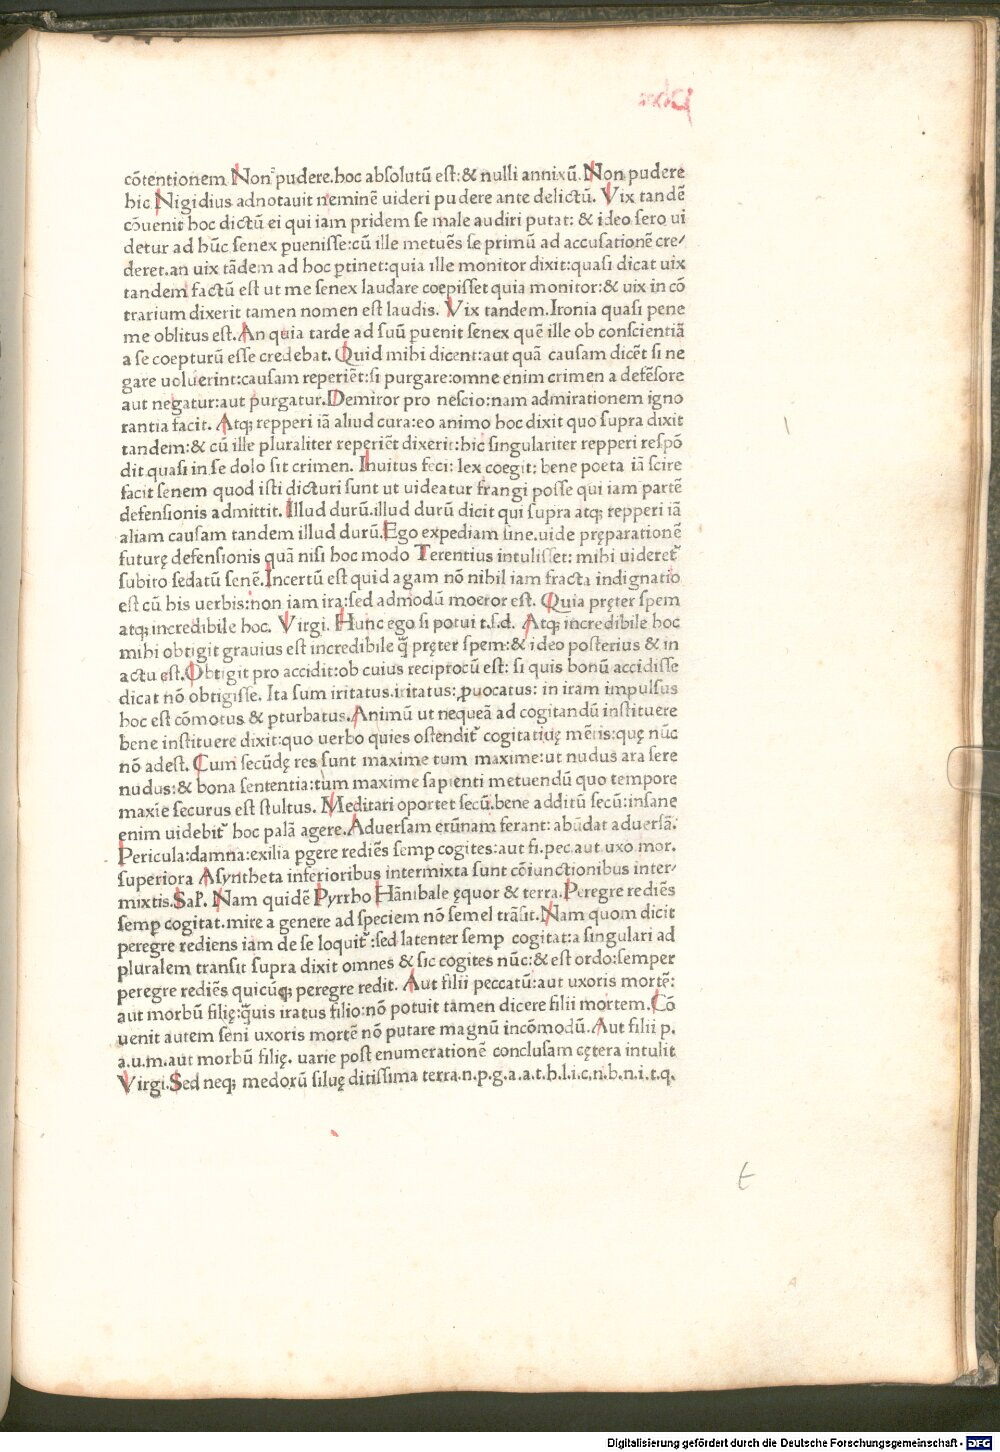 cōtentionem Non pudere.hoc absolutū est:& nulli annixū.Non pudere
hic Nigidius adnotauit neminē uideri pudere ante delictū. Vix tandē
cōuenit hoc dictū ei qui iam pridem se male audiri putat: & ideo sero ui
detur ad hūc senex puenisse:cū ille metuēs se primū ad accusationē cre/
deret.an uix tādem ad hoc ptinet:quia ille monitor dixit:quasi dicat uix
tandem factū est ut me senex laudare coepisset quia monitor:& uix in cō
trarium dixerit tamen nomen est laudis. Vix tandem.Ironia quasi pene
me oblitus est.An quia tarde ad suū puenit senex quē ille ob conscientiā
a se coepturū esse credebat. Quid mihi dicent:aut quā causam dicēt si ne
gare uoluerint:causam reperiēt:si purgare:omne enim crimen a defēsore
aut negatur:aut purgatur.Demiror pro nescio:nam admirationem igno
rantia facit. Atq; repperi iā aliud cura:eo animo hoc dixit quo supra dixit
tandem:& cū ille pluraliter reperiēt dixerit:hic singulariter repperi respō
dit quasi in se dolo sit crimen. Inuitus feci: lex coegit: bene poeta iā scire
facit senem quod isti dicturi sunt ut uideatur frangi posse qui iam partē
defensionis admittit. Illud durū.illud durū dicit qui supra atq; repperi iā
aliam causam tandem illud durū.Ego expediam sine.uide pręparationē
futurę defensionis quā nisi hoc modo Terentius intulisset: mihi uideret᷑
subito sedatū senē.Incertū est quid agam nō nihil iam fracta indignatio
est cū his uerbis:non iam ira:sed admodū moeror est. Quia pręter spem
atq; incredibile hoc. Virgi. Hunc ego si potui t.s.d. Atq; incredibile hoc
mihi obtigit grauius est incredibile q̄ pręter spem:& ideo posterius & in
actu est.Obtigit pro accidit:ob cuius reciprocū est: si quis bonū accidisse
dicat nō obtigisse. Ita sum iritatus.iritatus: puocatus: in iram impulsus
hoc est cōmotus & pturbatus.Animū ut nequeā ad cogitandū instituere
bene instituere dixit:quo uerbo quies ostendit᷑ cogitatiuę mētis:quę nūc
nō adest. Cum secūdę res sunt maxime tum maxime:ut nudus ara sere
nudus:& bona sententia:tum maxime sapienti metuendū quo tempore
maxīe securus est stultus. Meditari oportet secū.bene additū secū:insane
enim uidebit᷑ hoc palā agere.Aduersam erūnam ferant: abūdat aduersā.
Pericula:damna:exilia pgere rediēs semp cogites:aut fi.pec.aut uxo mor.
superiora Asyntheta inferioribus intermixta sunt cōiunctionibus inter/
mixtis.Sal᷑. Nam quidē Pyrrho Hānibale ęquor & terra.Peregre rediēs
semp cogitat.mire a genere ad speciem nō semel trāsit.Nam quom dicit
peregre rediens iam de se loquit᷑:sed latenter semp cogitat:a singulari ad
pluralem transit supra dixit omnes & sic cogites nūc:& est ordo:semper
peregre rediēs quicūq; peregre redit. Aut filii peccatū:aut uxoris mortē:
aut morbū filię:q̄uis iratus filio:nō potuit tamen dicere filii mortem.Cō
uenit autem seni uxoris mortē nō putare magnū incōmodū.Aut filii p.
a.u.m.aut morbū filię. uarie post enumerationē conclusam cętera intulit
Virgi.Sed neq; medorū siluę ditissima terra.n.p.g.a.a.t.h.l.i.c.n.b.n.i.t.q.
t
Digitalisierung gefördert durch die Deutsche Forschungsgemeinschaft - DFG